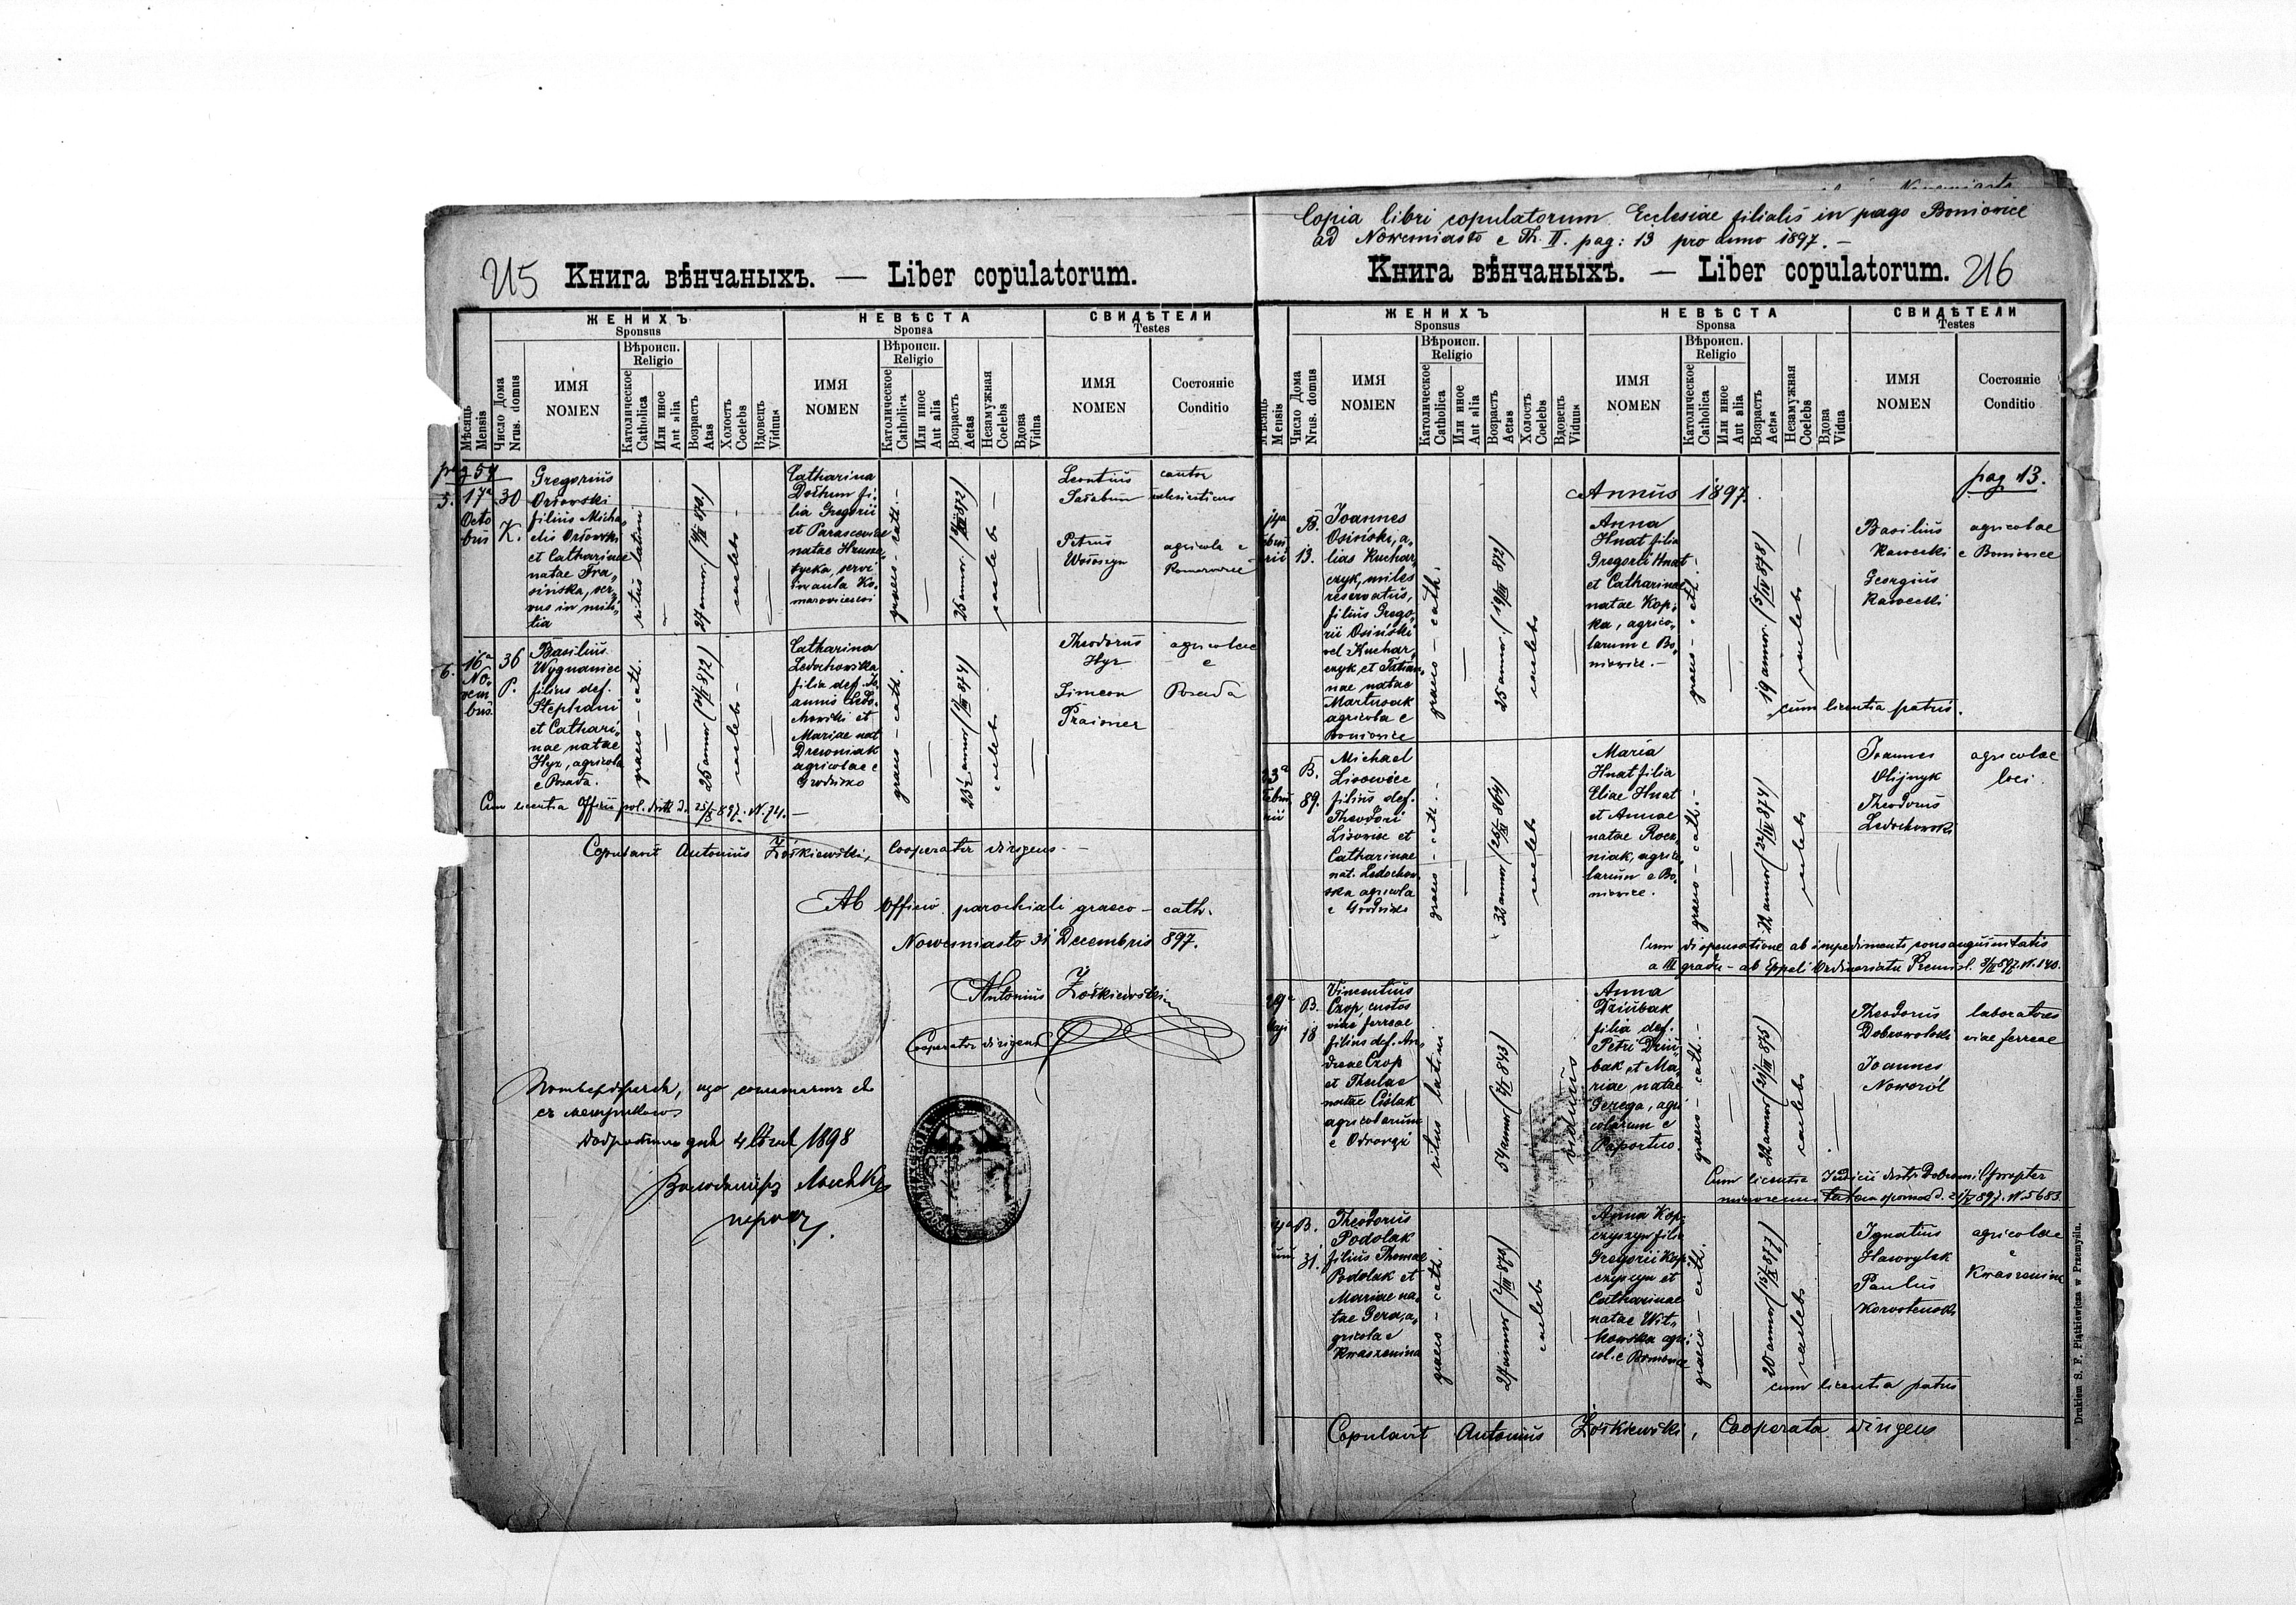 215 Книга вѣнчаныхъ. — Liber copulatorum.
ЖЕНИХЪ
Sponsus
НЕВѢСТА
Sponsa
СВИДѢТЕЛИ
Testes
Мѣсяць
Mensis
Число Дома
Nrus. domus
ИМЯ
NOMEN
Вѣроисп.
Religio
Католическое
Catholica
Или иное
Aut alia
Возрасть
Atas
Холость
Coelebs
Вдовець
Viduus
ИМЯ
NOMEN
Вѣроисп.
Religio
Католическое
Catholica
Или иное
Aut alia
Возрасть
Aetas
Незамужная
Coelebs
Вдова
Vidua
ИМЯ
NOMEN
Состояніе
Conditio
pag 57
5.
17a
Octo
bris
30
K.
Gregorius
Orłowski
filius Micha-
elis Orłowski
et Catharinae
natae Fra-
sińska, ser-
vus in mili-
tia
ritus latini
27 annor.
coelebs —
Catharina
Dołhun fi-
lia Gregorii
et Parasceviae
natae
graeco - cath. -
25 annor.
coelebs —
Leontius
cantor
ecclesiasticus
Petrus
Wołoszyn
agricola e
Komarowice
6.
16a
No-
vem
bris
36
P.
Basilius
Wygnaniec
filius def.
Stephani
et Cathari-
nae natae
Hyz, agricola
e Posada.
graeco - cath.
25 annor
coelebs -
Catharina
Ledochowska
filia def. Jo-
annis Ledo-
chowski et
Mariae nat
Drewniak
agricolae e
Grodzisko
graeco - cath.
23½ annor
coelebs
Theodorus
Hyz
Simeon
Praisner
agricolae
e
Posada
Cum licentia Officii pol. distr. d. 25/X 897. N. 74. —
Copulavit Antonius Żółkiewski, Cooperator dirigens —
Ab Officio parochiali graeco - cath.
Nowemiasto 31 Decembris 897.
Antonius Żółkiewski
Cooperator dirigens
1898
Copia libri copulatorum Ecclesiae filialis in pago Boniowice
ad Nowemiasto e Th. II. pag: 13 pro anno 1897. —
Книга вѣнчаныхъ. — Liber copulatorum. 216
ЖЕНИХЪ
Sponsus
НЕВѢСТА
Sponsa
СВИДѢТЕЛИ
Testes
Мѣсяць
Mensis
Число Дома
Nrus. domus
ИМЯ
NOMEN
Вѣроисп.
Religio
Католическое
Catholica
Или иное
Aut alia
Возрасть
Aetas
Холость
Coelebs
Вдовець
Viduus
ИМЯ
NOMEN
Вѣроисп.
Religio
Католическое
Catholica
Или иное
Aut alia
Возрасть
Aetas
Незамужная
Coelebs
Вдова
Vidua
ИМЯ
NOMEN
Состояніе
Conditio
Annus 1897.
pag 13.
B.
13.
Joannes
Osiński, a-
lias Kuchar-
czyk, miles
reservatus,
filius Grego-
rii Osiński
vel Kuchar-
czyk et Tatian-
nae natae
Martusiak
agricola e
Boniowice
graeco - cath.
25 annor.
coelebs
Anna
Hnat filia
Gregorii Hnat
et Catharinae
natae Kop-
ka, agrico-
larum e Bo-
niowice. -
graeco - cth. -
19 annor.
coelebs —
Basilius
Rawecki
Georgius
Rawecki
agricolae
e Boniowice
cum licentia patris.
23a
B.
89.
Michael
Lisowiec
filius def.
Theodori
Lisowiec et
Catharinae
nat. Ledochow-
ska agricola
e Grodzisko
graeco - cath. -
32 annor
coelebs
Maria
Hnat filia
Eliae Hnat
et Annae
natae Rocz-
niak, agrico-
larum e Bo-
niowice.
graeco - cath. -
22 annor
coelebs
Joannes
Olijnyk
Theodorus
Ledochowski
agricolae
loci.
Cum dispensatione ab impedimento consanguinitatis
a III gradu - ab Eppali Ordinariatu Premisl. N. 140.
29a
B.
18
Vincentius
Czop, custos
viae ferreae
filius def. An-
dreae Czop
et Theclae
natae Cislak
agricolarum
e Odrowąż
ritus latini
54 annor
viduus
Anna
Dziubak
filia def.
Petri Dziu-
bak et Ma-
riae natae
Gerega, agri
colarum e
Paportno
graeco - cath. -
22 annor
coelebs
Theodorus
Dobrowolski
Joannes
Noworól
laboratores
viae ferreae
Cum licentia Judicii distr. Dobromil propter
minorennitatem sponsae d. N. 5683.
B.
31.
Theodorus
Podolak
filius Thomae
Podolak et
Mariae na-
tae Gera, a-
gricola e
Kwaszenina
graeco - cath.
27 annor
coelebs
Anna Kop-
czyszyn filia
Gregorii Kop-
czyszyn et
Catharinae
natae Wit-
kowska agri-
col. e Boniowice
graeco - cath.
20 annor
coelebs
Ignatius
Hawrylak
Paulus
agricolae
e
Kwaszenina
cum licentia patris
Copulavit Antonius Żółkiewski, Cooperator dirigens
Drukiem S. F. Piątkiewicza w Przemyślu.